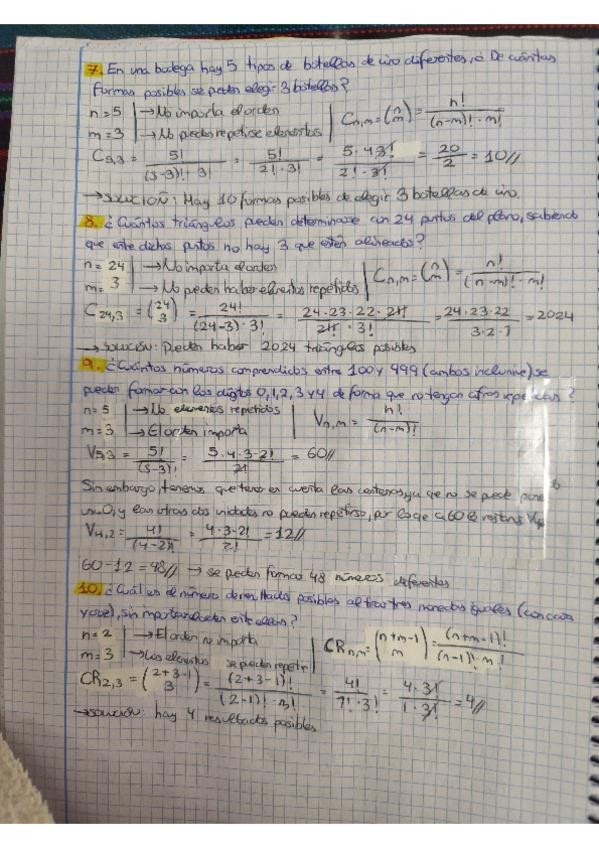 7. En una bodega hay 5 tipos de botellas de vino diferentes, ¿De cuántas
formas posibles se pueden elegir 3 botellas?
n=5 | →No importa el orden | C n,m = (n m) = n! / (n-m)! · m!
m=3 | →No pueden repetirse elementos
C5,3 = 5! / (5-3)! · 3! = 5! / 2! · 3! = 5·4·3! / 2! · 3! = 20 / 2 = 10//
→SOLUCIÓN: Hay 10 formas posibles de elegir 3 botellas de vino.
8. ¿Cuántos triángulos pueden determinarse con 24 puntos del plano, sabiendo
que entre dichos puntos no hay 3 que estén alineados?
n=24 | →No importa el orden | C n,m = (n m) = n! / (n-m)! · m!
m=3 | →No pueden haber elementos repetidos
C24,3 = (24 3) = 24! / (24-3)·3! = 24·23·22·21! / 21! · 3! = 24·23·22 / 3·2·1 = 2024
→SOLUCIÓN: Pueden haber 2024 triángulos posibles
9. ¿Cuántos números comprendidos entre 100 y 999 (ambos inclusive) se
pueden formar con los dígitos 0,1,2,3 y 4 de forma que no tengan cifras repetidas?
n=5 | →No elementos repetidos | V n,m = n! / (n-m)!
m=3 | →El orden importa
V5,3 = 5! / (5-3)! = 5·4·3·2! / 2! = 60//
Sin embargo, tenemos que tener en cuenta las centenas, ya que no se puede poner
un 0, y las otras dos unidades no pueden repetirse, por lo que a 60 le restamos V4,2
V4,2 = 4! / (4-2)! = 4·3·2! / 2! = 12//
60-12=48// → se pueden formar 48 números diferentes
10. ¿Cuál es el número de resultados posibles al tirar tres monedas iguales (con cara
y cruz), sin importar el orden
n=2 | →El orden no importa | CR n,m = (n+m-1 m) = (n+m-1)! / (n-1)! · m!
m=3 | →Los elementos se pueden repetir
CR2,3 = (2+3-1 3) = (2+3-1)! / (2-1)! · 3! = 4! / 1! · 3! = 4·3! / 1·3! = 4//
→SOLUCIÓN: hay 4 resultados posibles